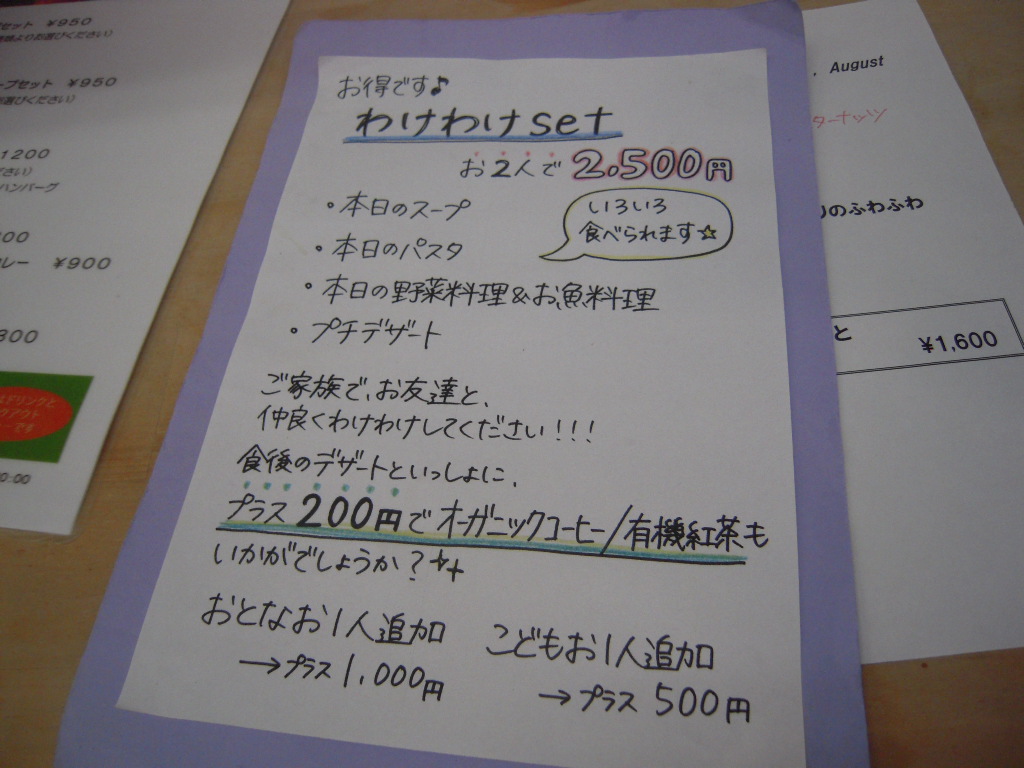 セット ¥950
お選びください)
プセット ¥950
お選びください)
1200
さい)
ハンバーグ
00
カレー ¥900
800
クアウト
です
0:00
お得です♪
わけわけset
お2人で 2,500円
・本日のスープ
・本日のパスタ
・本日の野菜料理&お魚料理
・プチデザート
いろいろ
食べられます☆
ご家族で、お友達と、
仲良くわけわけしてください!!!
食後のデザートといっしょに、
プラス200円でオーガニックコーヒー/有機紅茶も
いかがでしょうか?
おとなお1人追加
→プラス1,000円
こどもお1人追加
→プラス500円
, August
ターナッツ
のふわふわ
と
¥1,600